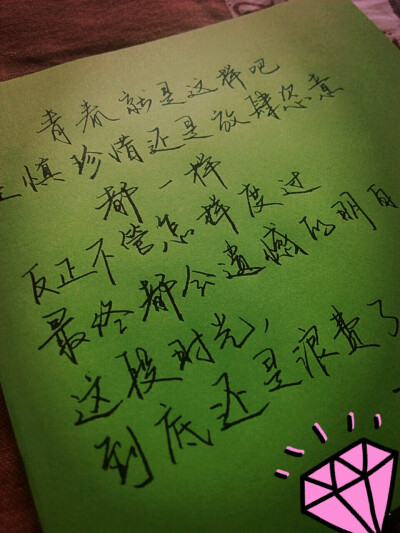 青春就是这样吧
谨慎珍惜还是放肆恣意
都一样
反正不管怎样度过
最终都会遗憾的明白
这段时光，
到底还是浪费了